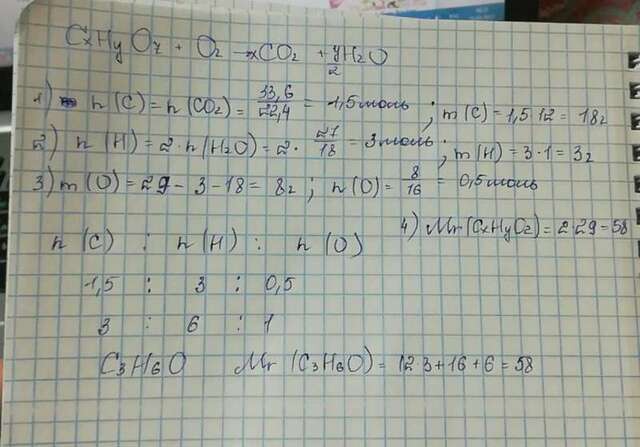 CxHyOz + O2 → xCO2 + y/2 H2O
1) n(C) = n(CO2) = 33,6/22,4 = 1,5 моль; m(C) = 1,5·12 = 18г
2) n(H) = 2·n(H2O) = 2·27/18 = 3 моль; m(H) = 3·1 = 3г
3) m(O) = 29 - 3 - 18 = 8г; n(O) = 8/16 = 0,5 моль
4) Mr(CxHyOz) = 2·29 = 58
n(C) : n(H) : n(O)
1,5 : 3 : 0,5
3 : 6 : 1
C3H6O Mr(C3H6O) = 12·3 + 16 + 6 = 58